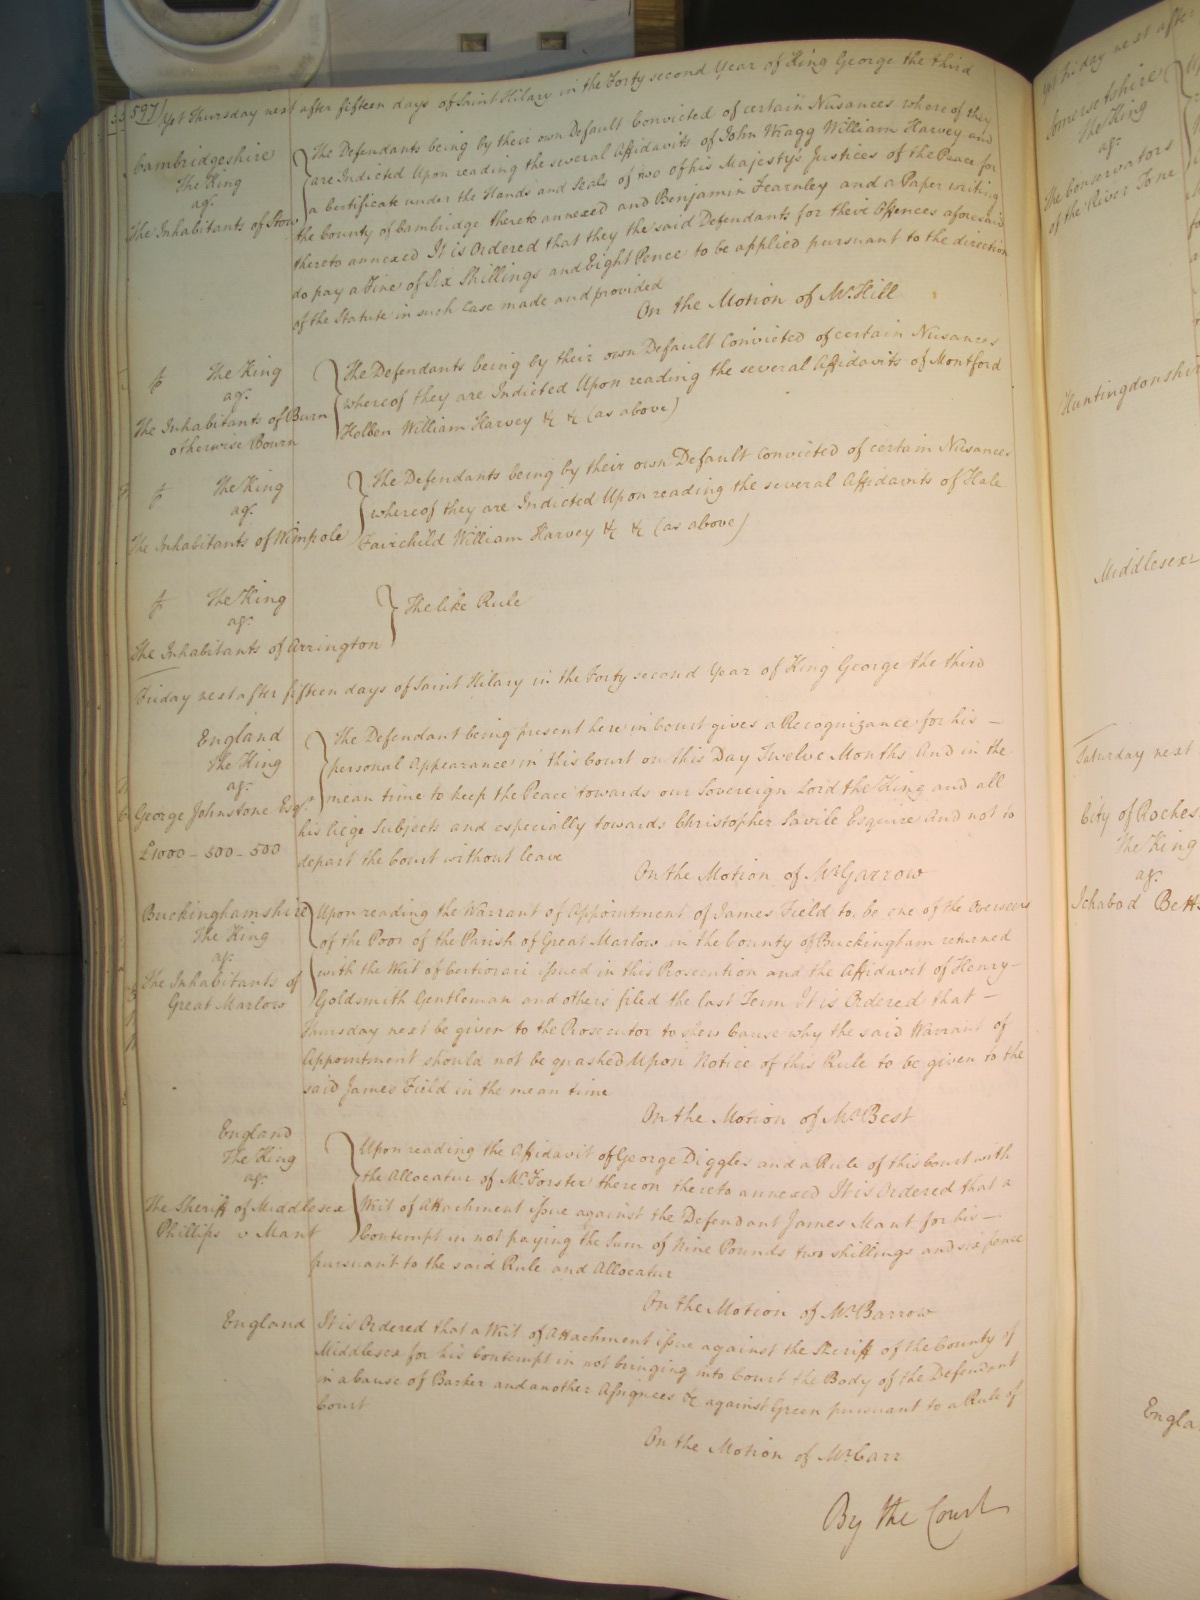 597 Yet Thursday next after fifteen days of Saint Hilary in the Forty second Year of King George the third
Cambridgeshire
The King
agt.
The Inhabitants of Stow
The Defendants being by their own Default Convicted of certain Nusances whereof they
are Indicted Upon reading the several Affidavits of John Wragg William Harvey and
a Certificate under the Hands and Seals of two of his Majesty's Justices of the Peace for
the County of Cambridge thereto annexed and Benjamin Fearnley and a Paper writing
thereto annexed It is Ordered that they the said Defendants for their Offences aforesaid
do pay a Fine of Six Shillings and Eight Pence to be applied pursuant to the direction
of the Statute in such Case made and provided
On the Motion of Mr. Hill
The King
agt.
The Inhabitants of Burn
otherwise Bourn
The Defendants being by their own Default Convicted of certain Nusances
whereof they are Indicted Upon reading the several Affidavits of Montford
Holben William Harvey &c &c (as above)
The King
agt.
The Inhabitants of Wimpole
The Defendants being by their own Default Convicted of certain Nusances
whereof they are Indicted Upon reading the several Affidavits of Hale
Fairchild William Harvey &c &c (as above)
The King
agt.
The Inhabitants of Arrington
The like Rule
Friday next after fifteen days of Saint Hilary in the Forty second Year of King George the third
England
The King
agt.
George Johnstone Esqr.
£1000 - 500 - 500
The Defendant being present here in Court gives a Recognizance for his —
personal Appearance in this Court on this Day Twelve Months And in the
mean time to keep the Peace towards our Sovereign Lord the King and all
his liege Subjects and especially towards Christopher Savile Esquire And not to
depart the Court without leave
On the Motion of Mr. Garrow
Buckinghamshire
The King
agt.
The Inhabitants of
Great Marlow
Upon reading the Warrant of Appointment of James Field to be one of the Overseers
of the Poor of the Parish of Great Marlow in the County of Buckingham returned
with the Writ of Certiorari issued in this Prosecution and the Affidavit of Henry —
Goldsmith Gentleman and others filed the last Term It is Ordered that —
Thursday next be given to the Prosecutor to shew Cause why the said Warrant of
Appointment should not be quashed Upon Notice of this Rule to be given to the
said James Field in the mean time
On the Motion of Mr. Best
England
The King
agt.
The Sheriff of Middlesex
Phillips v Mant
Upon reading the Affidavit of George Diggles and a Rule of this Court with
the Allocatur of Mr. Forster thereon thereto annexed It is Ordered that a
Writ of Attachment issue against the Defendant James Mant for his —
Contempt in not paying the Sum of Nine Pounds two shillings and six pence
pursuant to the said Rule and Allocatur
On the Motion of Mr. Barrow
England
It is Ordered that a Writ of Attachment issue against the Sheriff of the County of
Middlesex for his Contempt in not bringing into Court the Body of the Defendant
in a Cause of Barker and another Assignees &c against Green pursuant to a Rule of
Court
On the Motion of Mr. Carr
By the Court
Yet Friday next after
Somersetshire
The King
agt.
The Conservators
of the River Tone
Huntingdonshire
Middlesex
Saturday next
City of Roches
The King
agt.
Ichabod Betts
Engla